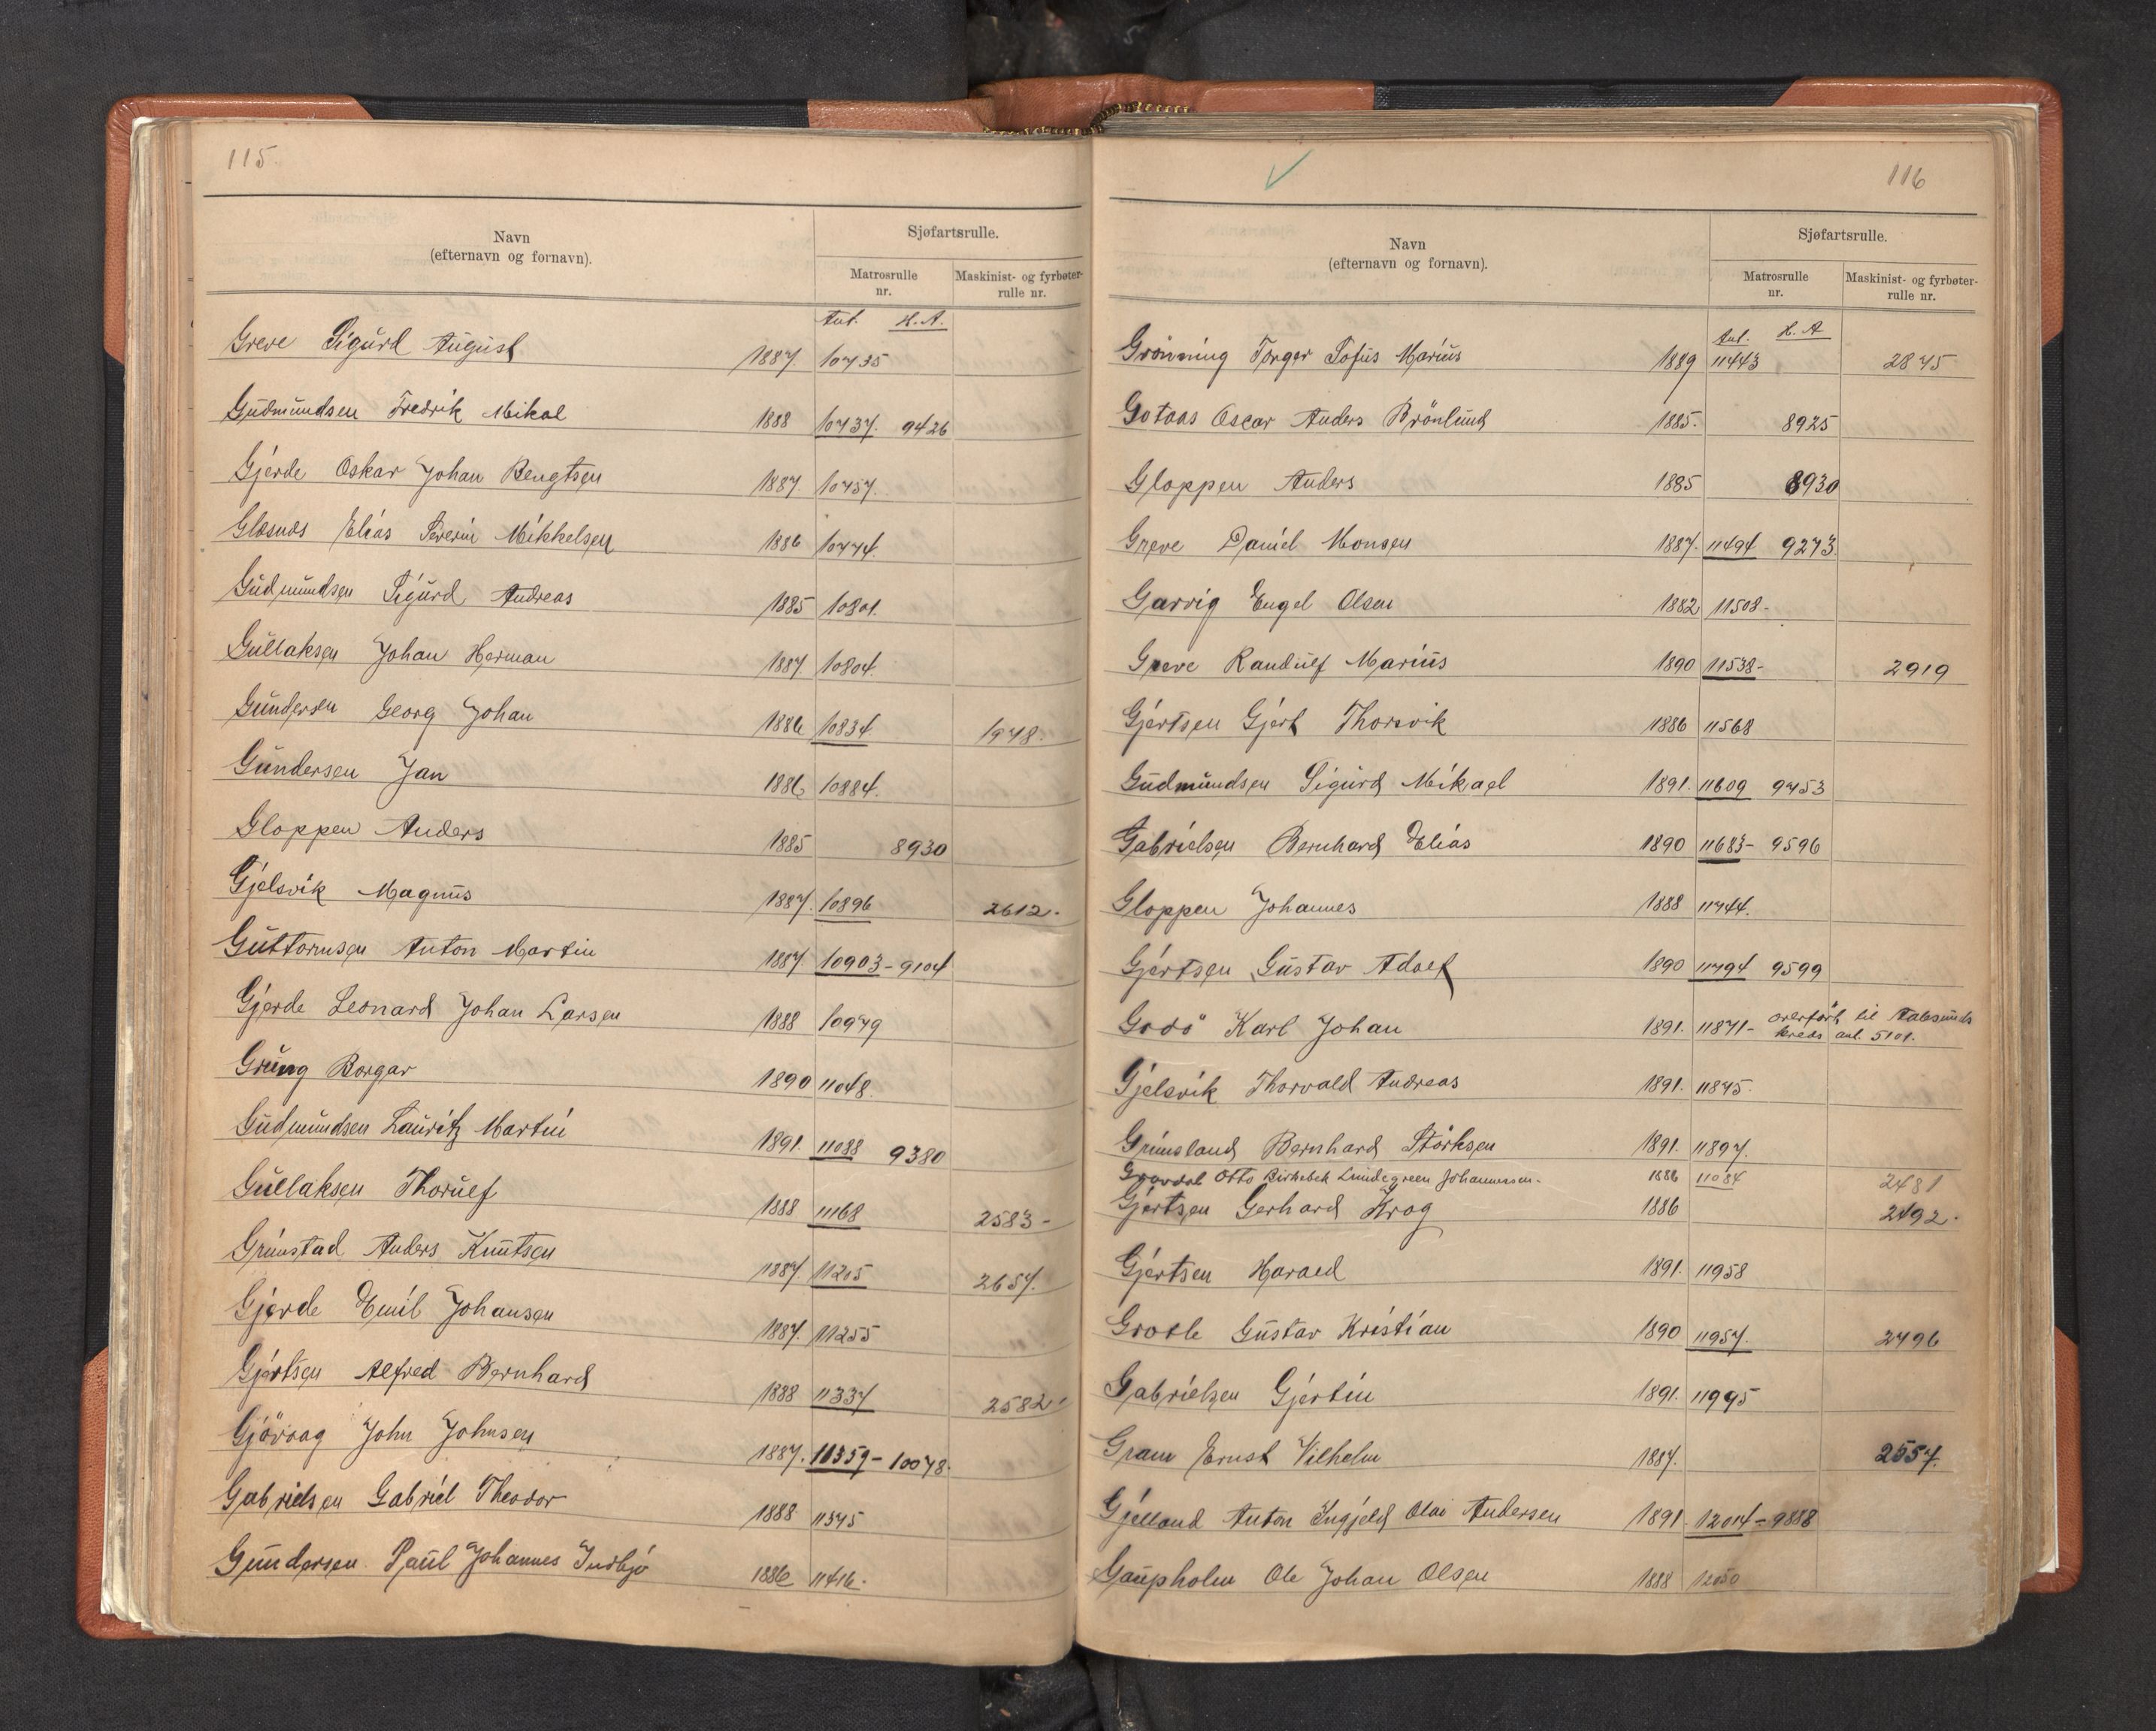 115.
Navn
(efternavn og fornavn).
Sjøfartsrulle.
Matrosrulle
nr.
Maskinist- og fyrbøter-
rulle nr.
Ant. H.A.
Greve Sigurd August 1887. 10735
Gudmundsen Fredrik Mikal 1888 10737. 9426
Gjerde Oskar Johan Bengtsen 1887. 10757.
Glæsnæs Elias Severin Mikkelsen 1886 10774.
Gudmundsen Sigurd Andreas 1885 10801.
Gullaksen Johan Herman 1887. 10804.
Gundersen Georg Johan 1886 10834 1978.
Gundersen Jan 1886 10884.
Gloppen Anders 1885 8930
Gjelsvik Magnus 1887. 10896 2612.
Guttormsen Anton Martin 1887. 10903 - 9104
Gjerde Leonard Johan Larsen 1888 10979
Grung Borgar 1890 11048.
Gudmundsen Lauritz Martin 1891. 11088 9380
Gullaksen Thorulf 1888 11168 2583 -
Grimstad Anders Knutsen 1887. 11205 2657.
Gjerde Emil Johansen 1887. 11255
Gjertsen Alfred Bernhard 1888 11337 2582.
Gjövaag John Johnsen 1887. 11359 - 10078.
Gabrielsen Gabriel Theodor 1888 11375
Gundersen Paul Johannes Indbjo 1886 11416.
116
Navn
(efternavn og fornavn).
Sjøfartsrulle.
Matrosrulle
nr.
Maskinist- og fyrbøter-
rulle nr.
Ant. H.A
Grönning Torger Sofus Marius 1889 11443 2875
Gotaas Oscar Anders Brönlund 1885. 8925
Gloppen Anders 1885 8930
Greve Daniel Monsen 1887. 11494 9273.
Garvig Engel Olsen 1882 11508 -
Greve Randulf Marius 1890 11538 - 2919
Gjertsen Gjert Thorsvik 1886 11568
Gudmundsen Sigurd Mikael 1891. 11609 9753
Gabrielsen Bernhard Elias 1890 11683 - 9596
Gloppen Johannes 1888 11744.
Gjertsen Gustav Adolf 1890 11794 9599
Godö Karl Johan 1891. 11871 - overført til Aalesunds
kreds ant. 5101.
Gjelsvik Thorvald Andreas 1891. 11875.
Grimsland Bernhard Störksen 1891. 11897.
Gravdal Otto Birkebek Lundegreen Johannessen. 1886 11084 2481
Gjertsen Gerhard Krog 1886 2492.
Gjertsen Harald 1891. 11958
Grotle Gustav Kristian 1890 11957. 2496
Gabrielsen Gjertin 1891. 11995
Gram Ernst Vilhelm 1887. 2557.
Gjelland Anton Ingjeld Olai Andersen 1891. 12014 - 9888
Gaupholm Ole Johan Olsen 1888 12050